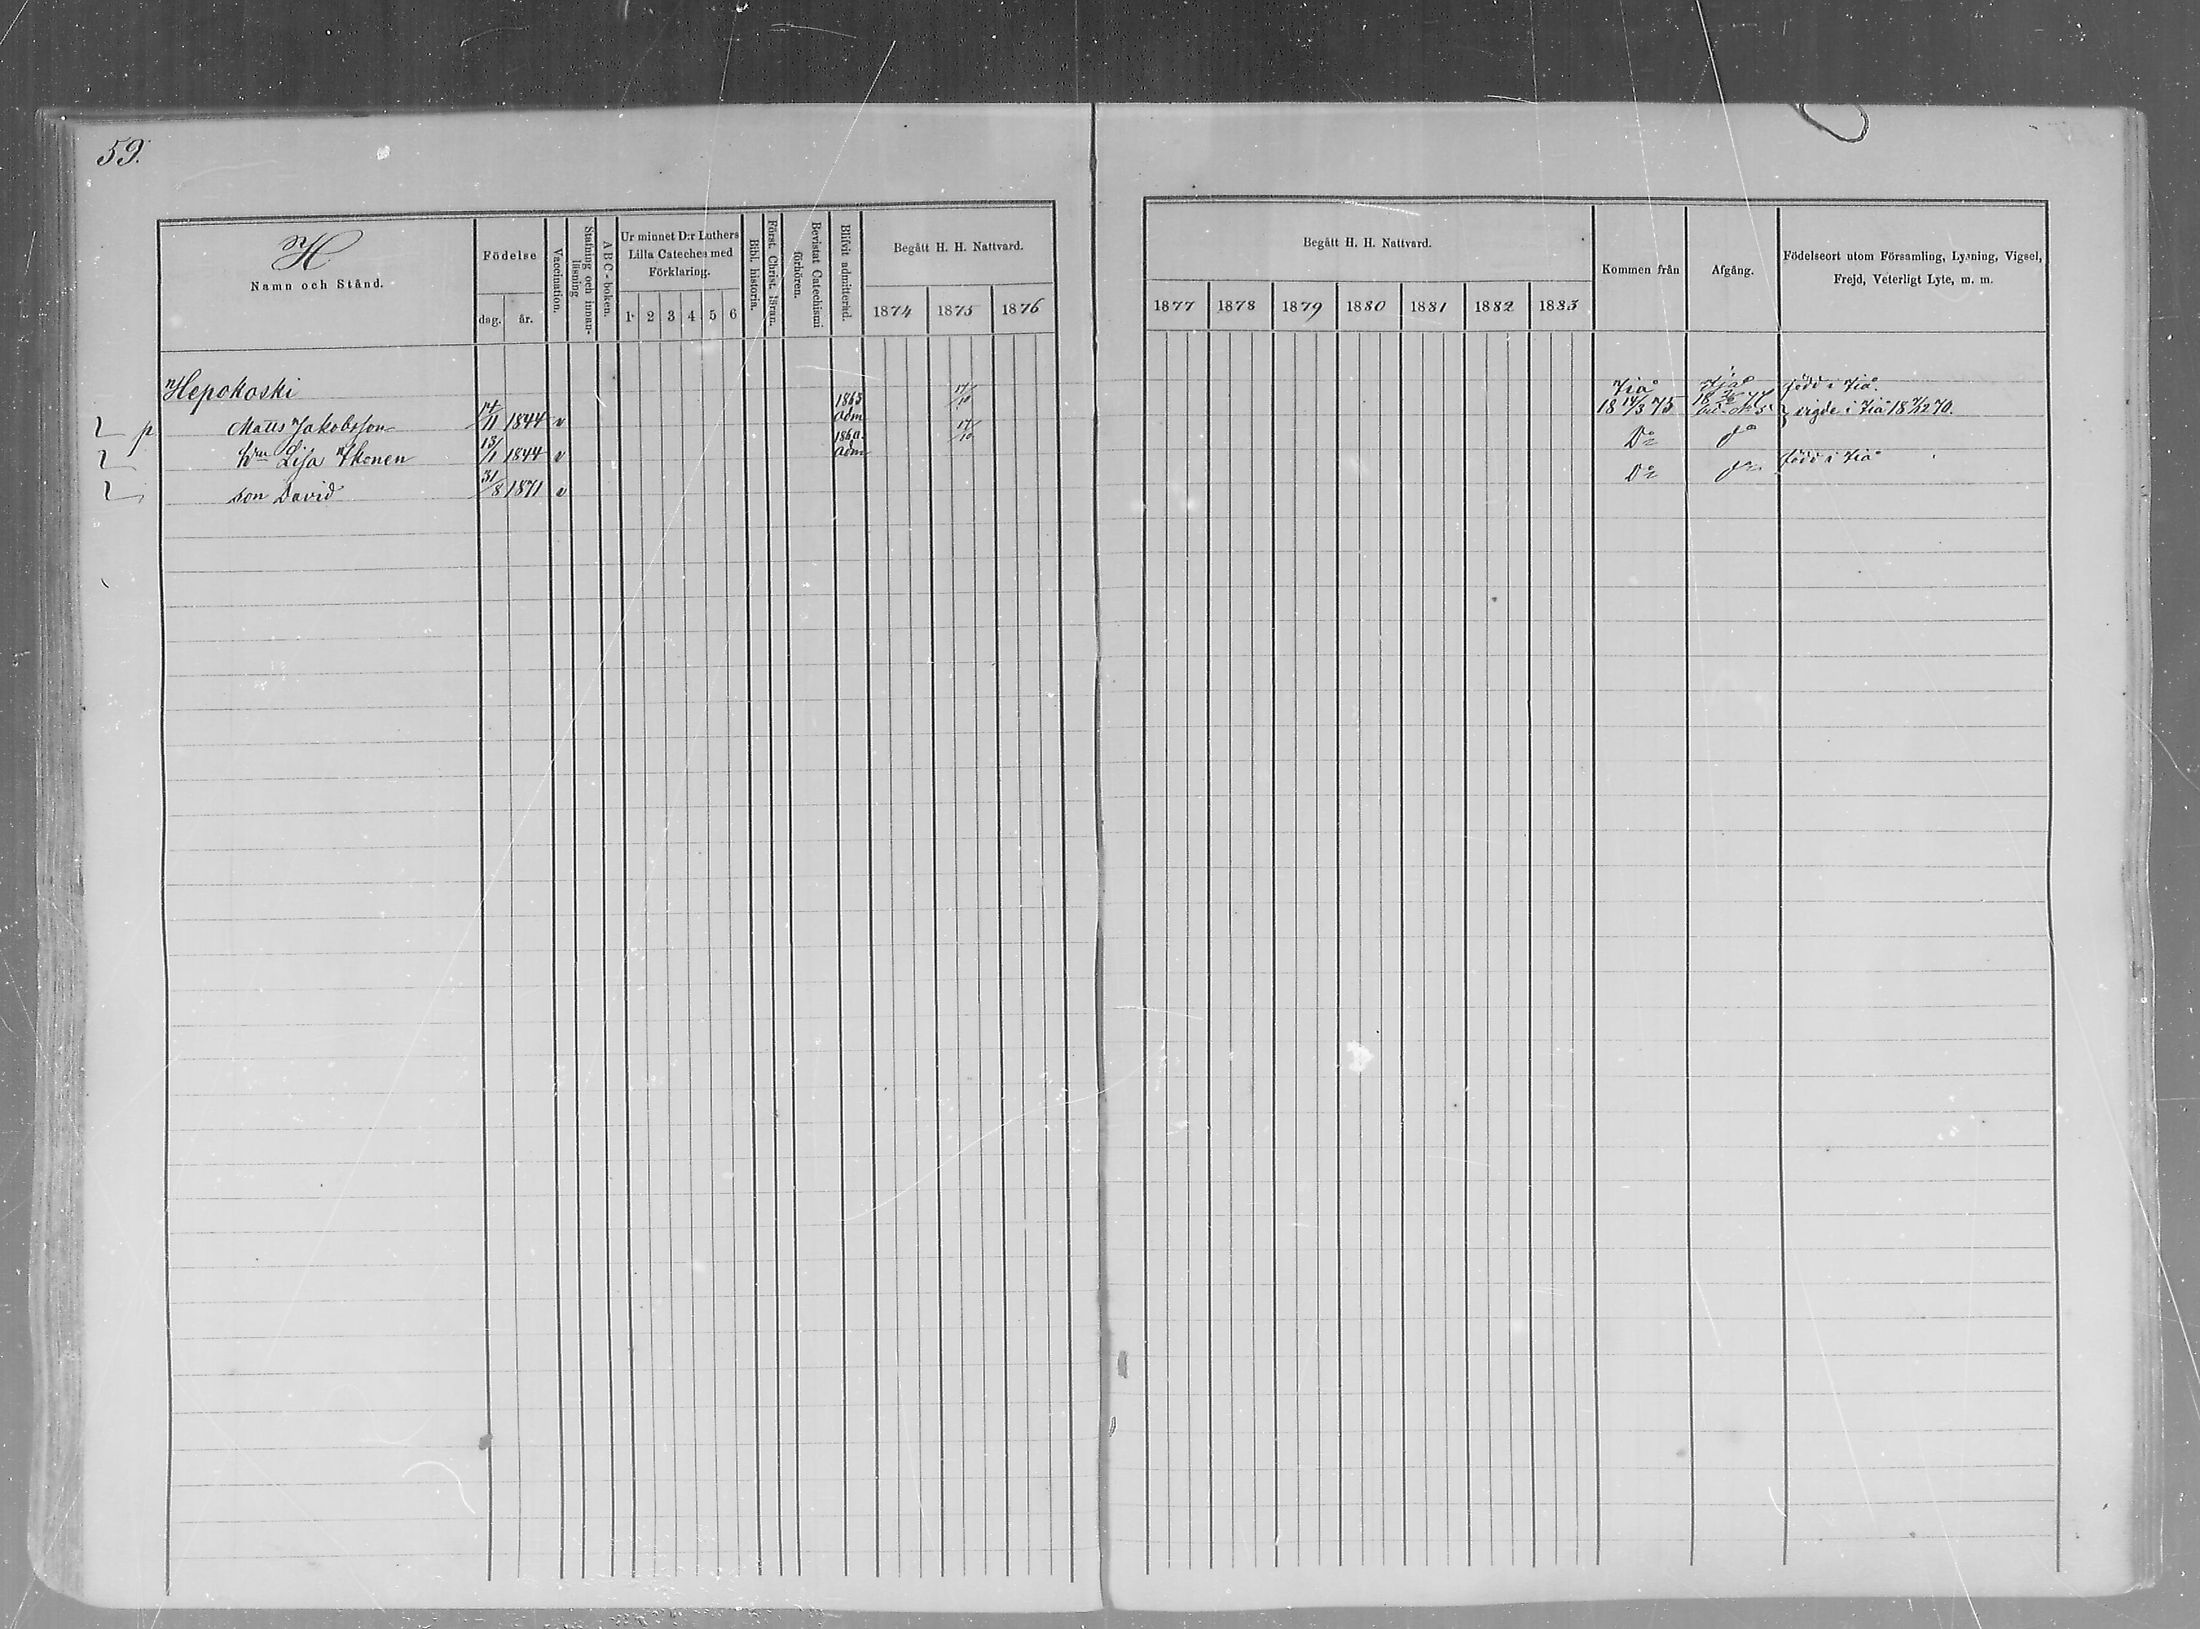 59.
H
Namn och Stånd.
Födelse
dag. år.
Vaccination.
Stafning och innan-
läsning
ABC-boken.
Ur minnet D:r Luthers
Lilla Cateches med
Förklaring.
1 2 3 4 5 6
Bibl. historia.
Först. Christ. läran.
Bevistat Catechismi
förhören.
Blifvit admitterad.
Begått H. H. Nattvard.
1874 1875 1876
Begått H. H. Nattvard.
1877 1878 1879 1880 1881 1882 1883
Kommen från
Afgång.
Födelseort utom Församling, Lysning, Vigsel,
Frejd, Veterligt Lyte, m. m.
Hepokoski
Matts Jakobsson 14/11 1844 v 1863 adm 17/10 18 14/3 75 född i
vigde i
h:u Lisa Ikonen 13/1 1844 v adm 17/10 D:o d:o
son David 31/8 1871 v D:o d:o född i